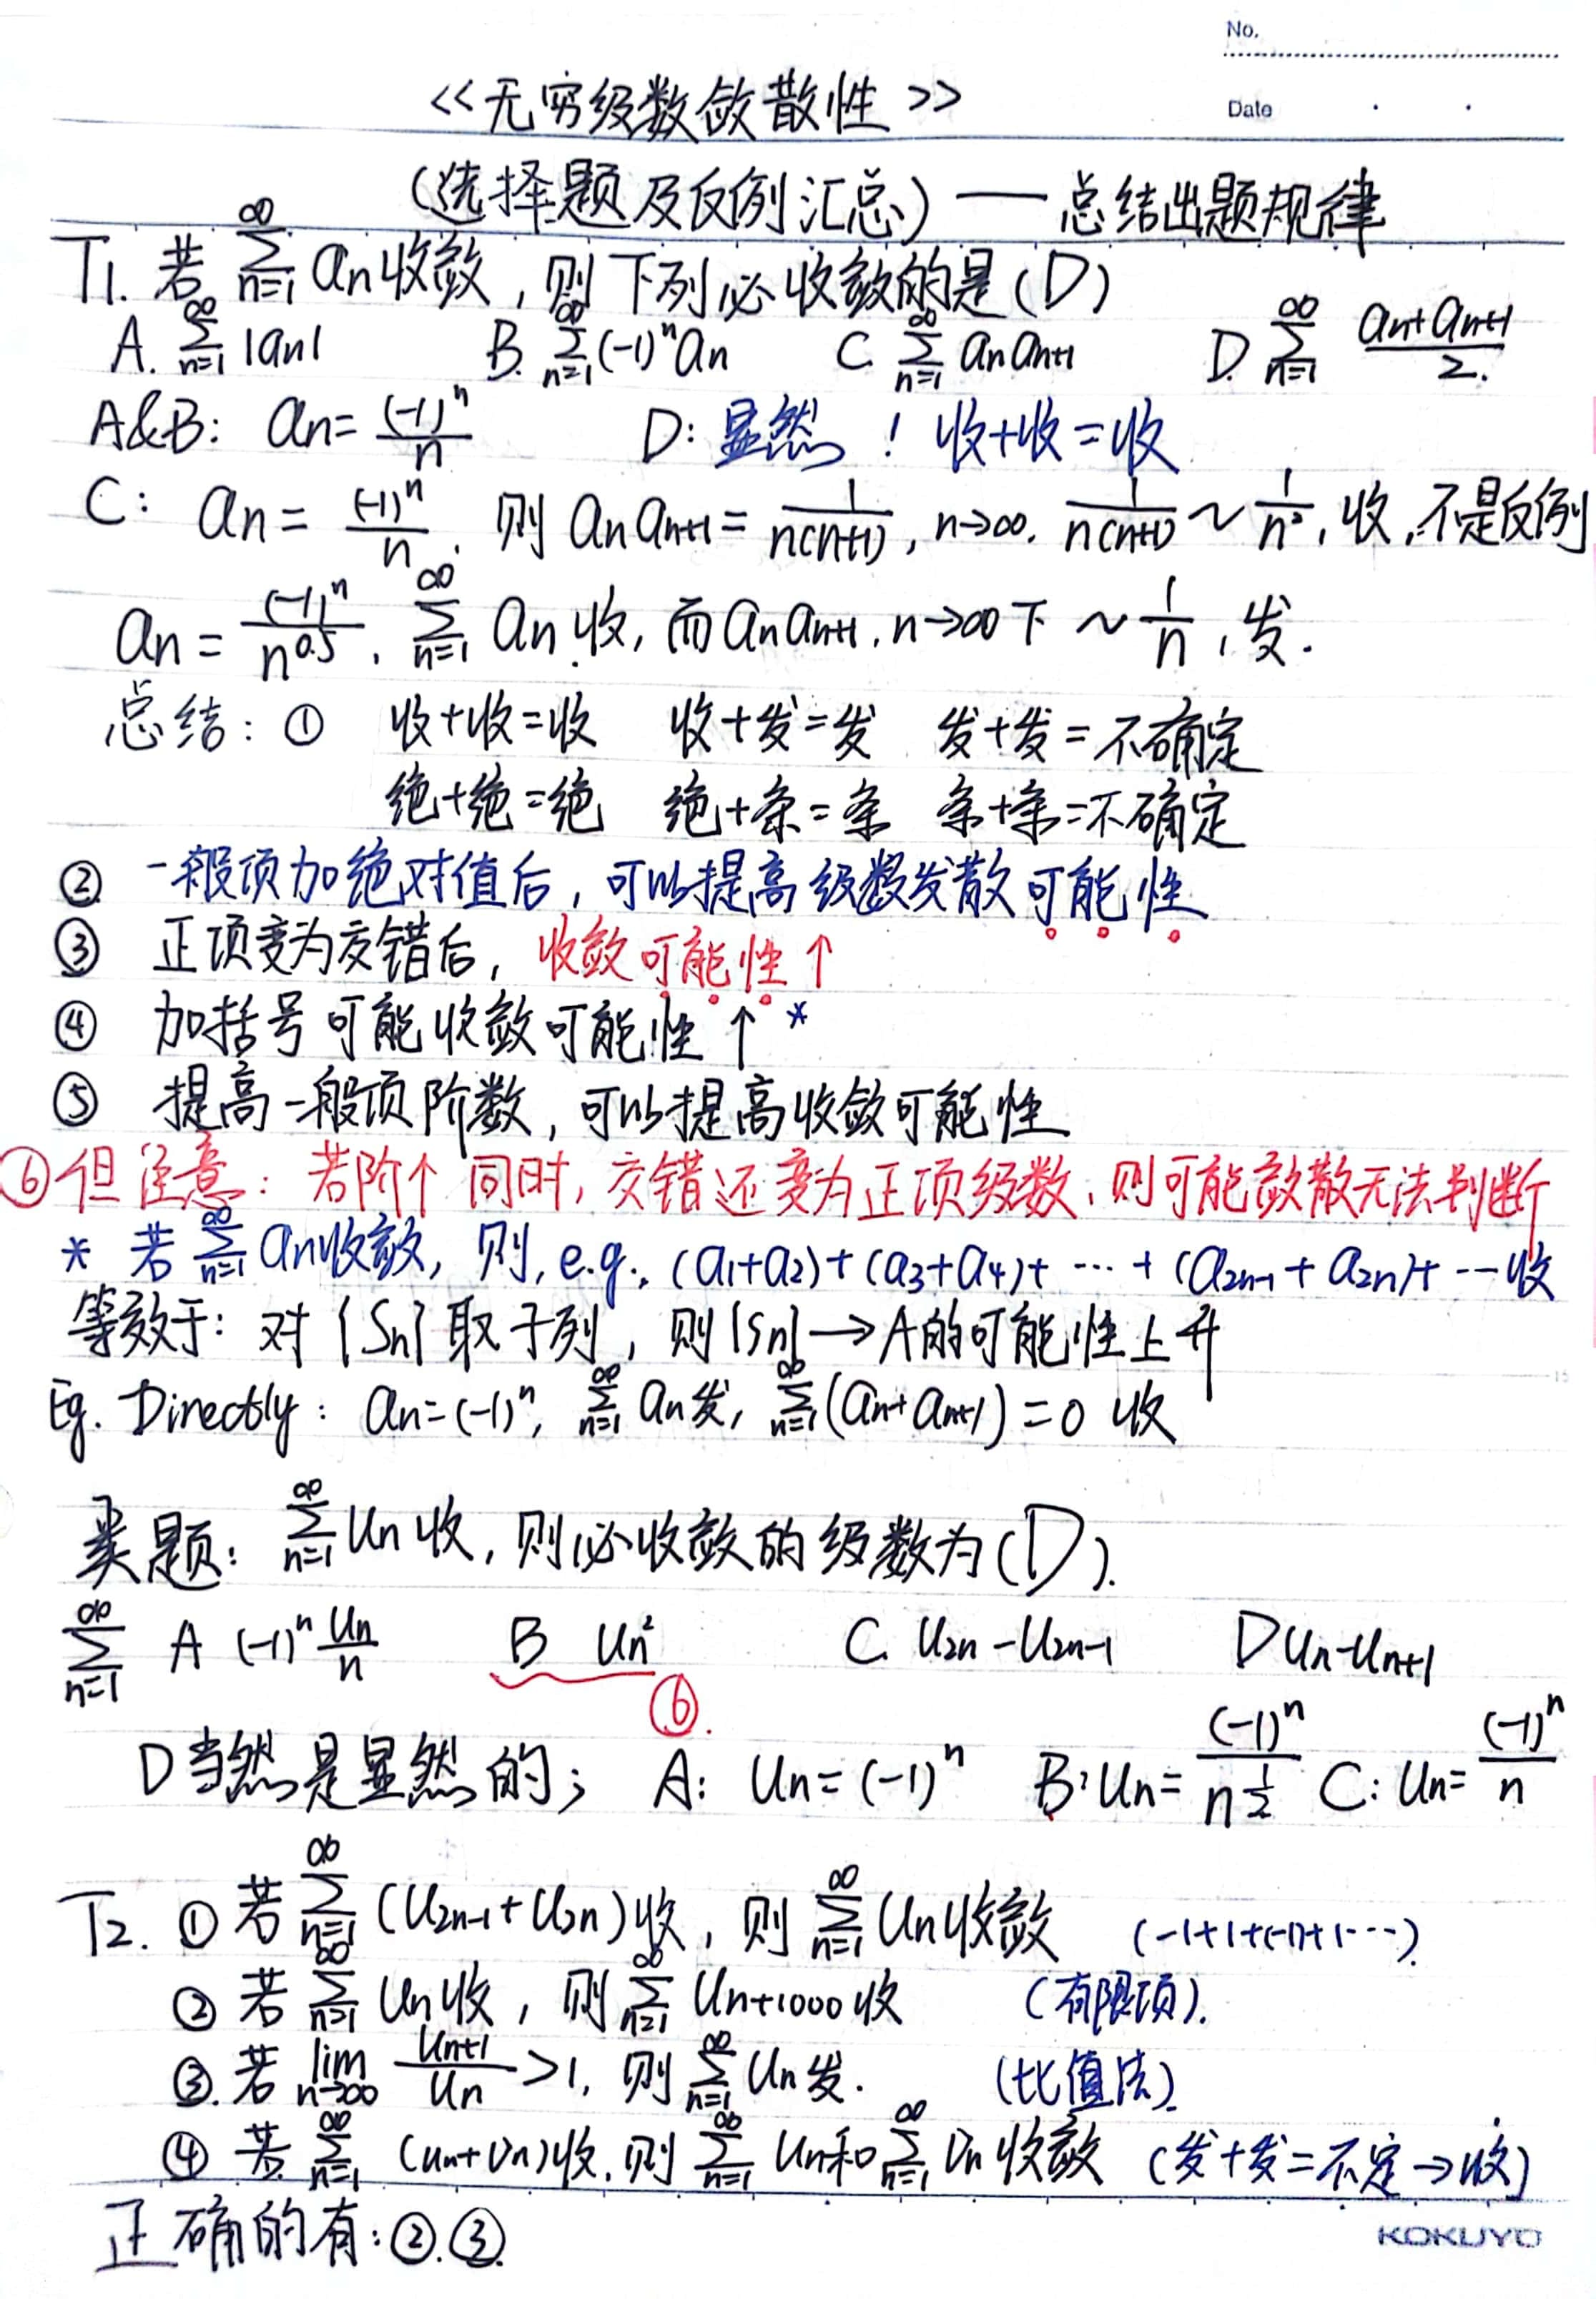 No.
Date
<<无穷级数敛散性>>
(选择题及反例汇总) — 总结出题规律
T1. 若 ∑_{n=1}^{∞} an 收敛, 则下列必收敛的是 (D)
A. ∑_{n=1}^{∞} |an| B. ∑_{n=1}^{∞} (-1)^n an C. ∑_{n=1}^{∞} an an+1 D. ∑_{n=1}^{∞} (an+an+1)/2.
A&B: an = (-1)^n/n D: 显然! 收+收=收
C: an = (-1)^n/n. 则 an an+1 = 1/n(n+1), n→∞. 1/n(n+1) ~ 1/n², 收, 不是反例
an = (-1)^n/n^0.5, ∑_{n=1}^{∞} an 收, 而 an an+1, n→∞下 ~ 1/n, 发.
总结: ① 收+收=收 收+发=发 发+发=不确定
绝+绝=绝 绝+条=条 条+条=不确定
② 一般项加绝对值后, 可以提高级数发散可能性
③ 正项变为交错后, 收敛可能性↑
④ 加括号可能收敛可能性↑*
⑤ 提高一般项阶数, 可以提高收敛可能性
⑥但注意: 若阶↑同时, 交错还变为正项级数, 则可能敛散无法判断
* 若 ∑_{n=1}^{∞} an收敛, 则, e.g., (a1+a2)+(a3+a4)+ ··· + (a2n-1 + a2n)+ ···收
等效于: 对{Sn}取子列, 则{Sn}→A的可能性上升
Eg. Directly: an=(-1)^n, ∑_{n=1}^{∞} an发, ∑_{n=1}^{∞} (an+an+1)=0 收
类题: ∑_{n=1}^{∞} Un收, 则必收敛的级数为(D).
∑_{n=1}^{∞} A (-1)^n Un/n B Un² C. U2n - U2n-1 D Un-Un+1
⑥.
D当然是显然的; A: Un=(-1)^n B: Un= (-1)^n/n^(1/2) C: Un= (-1)^n/n
T2. ① 若 ∑_{n=1}^{∞} (U2n-1+U2n)收, 则 ∑_{n=1}^{∞} Un收敛 (-1+1+(-1)+1···).
② 若 ∑_{n=1}^{∞} Un收, 则 ∑_{n=1}^{∞} Un+1000收 (有限项).
③. 若 lim_{n→∞} Un+1/Un >1, 则 ∑_{n=1}^{∞} Un发. (比值法).
④ 若 ∑_{n=1}^{∞} (un+vn)收, 则 ∑_{n=1}^{∞} Un和 ∑_{n=1}^{∞} Vn 收敛 (发+发=不定→收)
正确的有: ②.③.
KOKUYO